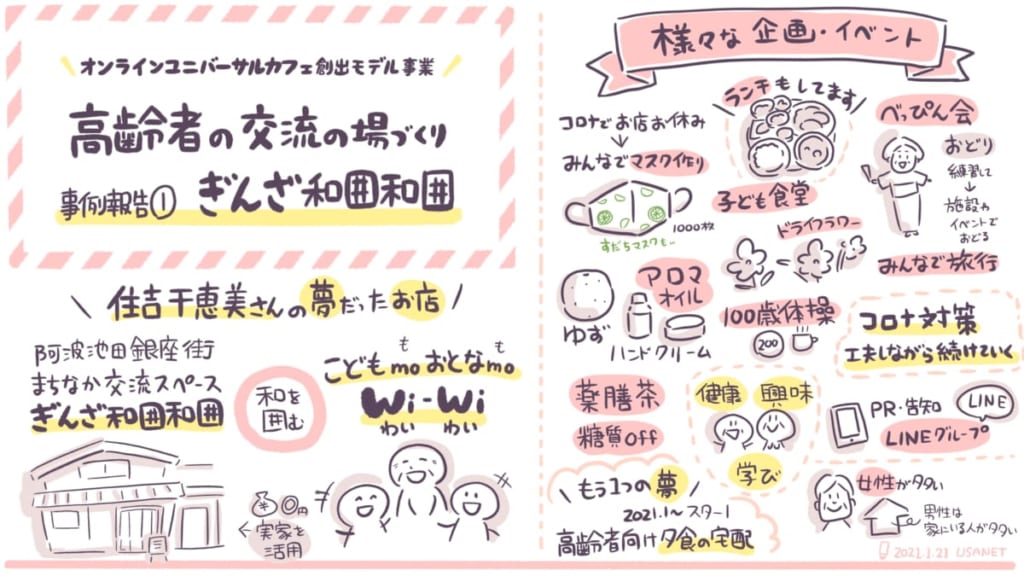 オンラインユニバーサルカフェ創出モデル事業
高齢者の交流の場づくり
事例報告① ぎんざ和囲和囲
住吉千恵美さんの夢だったお店
阿波池田銀座街
まちなか交流スペース
ぎんざ和囲和囲
和を
囲む
も も
こどもmoおとなmo
Wi-Wi
わい わい
¥0円
←実家を
活用
様々な企画・イベント
コロナでお店お休み
↓
みんなでマスク作り
1000枚
すだちマスクも..
ランチもしてます
子ども食堂
べっぴん会
おどり
練習して
↓
施設や
イベントで
おどる
みんなで旅行
ドライフラワー
ゆず
アロマ
オイル
ハンドクリーム
100歳体操
200
コロナ対策
工夫しながら続けていく
薬膳茶
糖質OFF
健康 興味
学び
PR・告知
LINE
LINEグループ
もう1つの夢
2021.1〜スタート
高齢者向け夕食の宅配
女性が多い
男性は
家にいる人が多い
2021.1.21 USANET